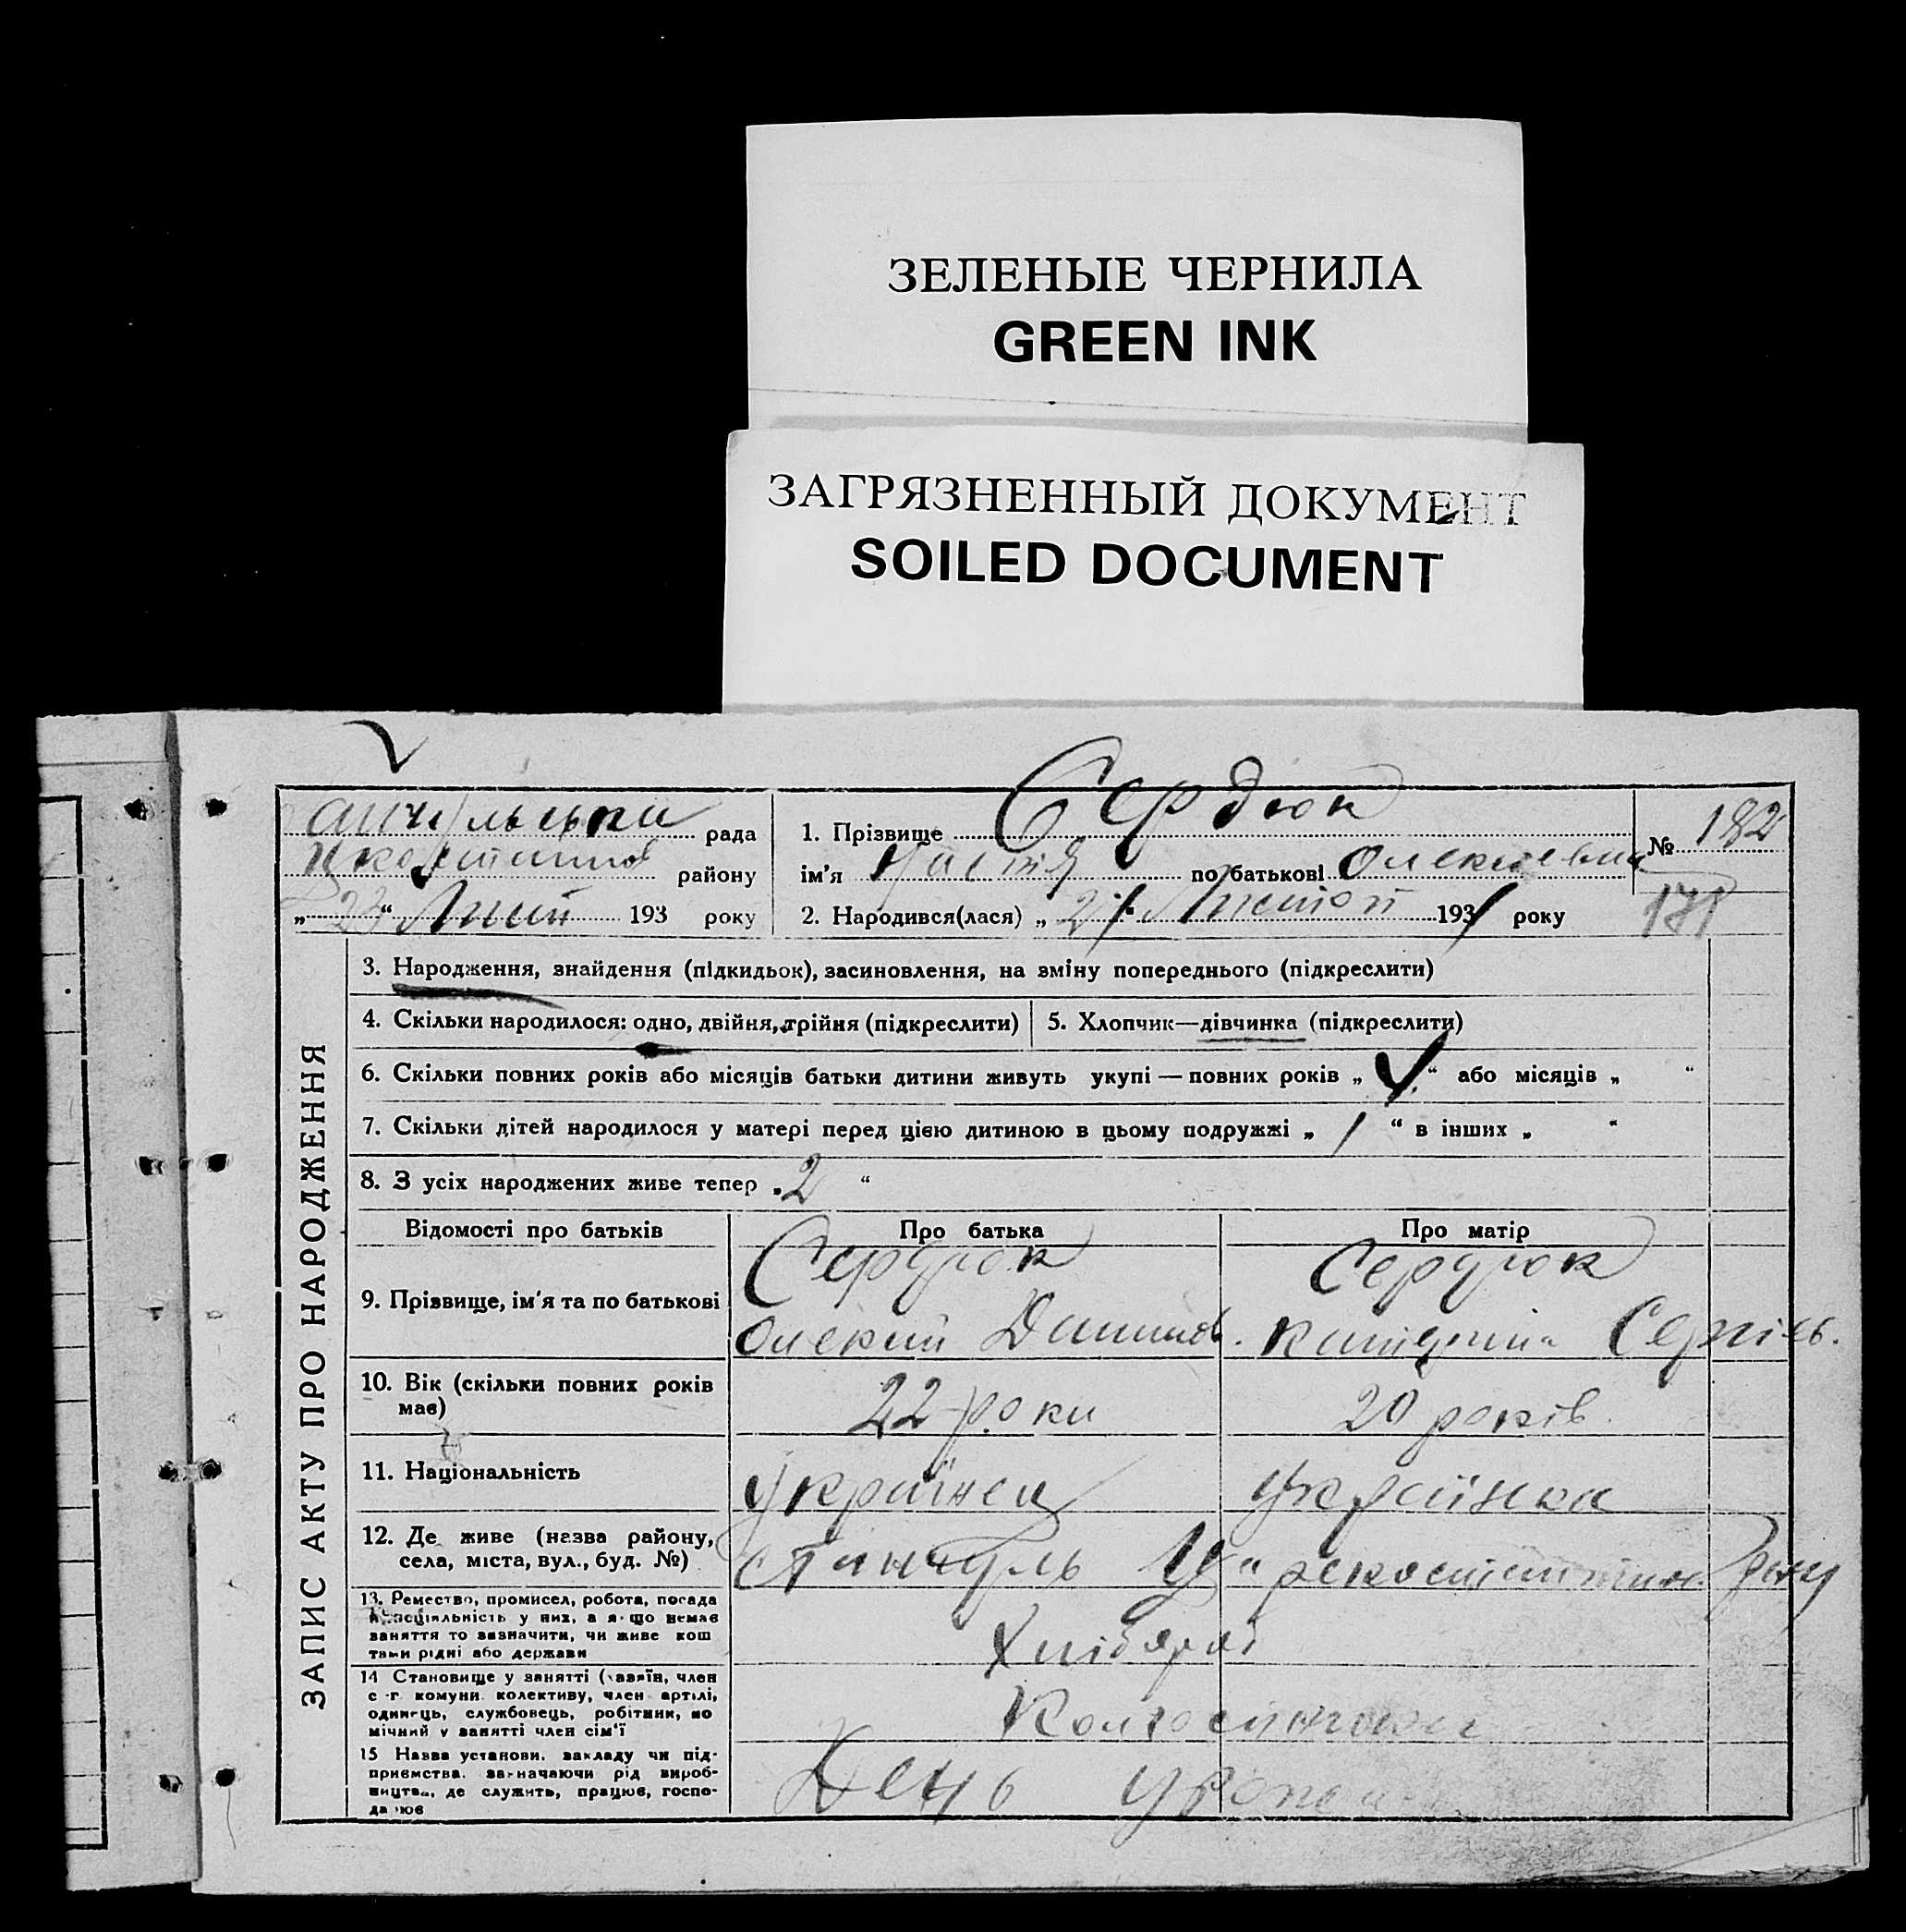 ЗЕЛЕНЫЕ ЧЕРНИЛА
GREEN INK
ЗАГРЯЗНЕННЫЙ ДОКУМЕНТ
SOILED DOCUMENT
рада
району
„ 23 “ 193 року
1. Прізвище Сердюк
ім'я Настя по батькові Олексіевна
2. Народився(лася) „ 21 “ 1931 року
№ 182
171
ЗАПИС АКТУ ПРО НАРОДЖЕННЯ
3. Народження, знайдення (підкидьок), засиновлення, на зміну попереднього (підкреслити)
4. Скільки народилося: одно, двійня, трійня (підкреслити)
5. Хлопчик—дівчинка (підкреслити)
6. Скільки повних років або місяців батьки дитини живуть укупі — повних років „ “ або місяців „ “
7. Скільки дітей народилося у матері перед цією дитиною в цьому подружжі „ 1 “ в інших „ “
8. З усіх народжених живе тепер „ 2 “
Відомості про батьків Про батька Про матір
9. Прізвище, ім'я та по батькові
Сердюк Сердюк
Олексій Данилов. Катерина Сергієв.
10. Вік (скільки повних років має)
22 роки 20 років
11. Національність
Українец Українка
12. Де живе (назва району,
села, міста, вул., буд. №)
13. Ремество, промисел, робота, посада
й спеціяльність у них, а якщо немає
заняття то зазначити, чи живе кош
тами рідні або держави
Хлібороб
14 Становище у занятті (хазяїн, член
с.-г. комуни. колективу, член артілі,
одинець, службовець, робітник, по
мічний у занятті член сім'ї
15 Назва установи. закладу чи під-
приємства. зазначаючи рід вироб-
ництва, де служить, працює, госпо-
дарює